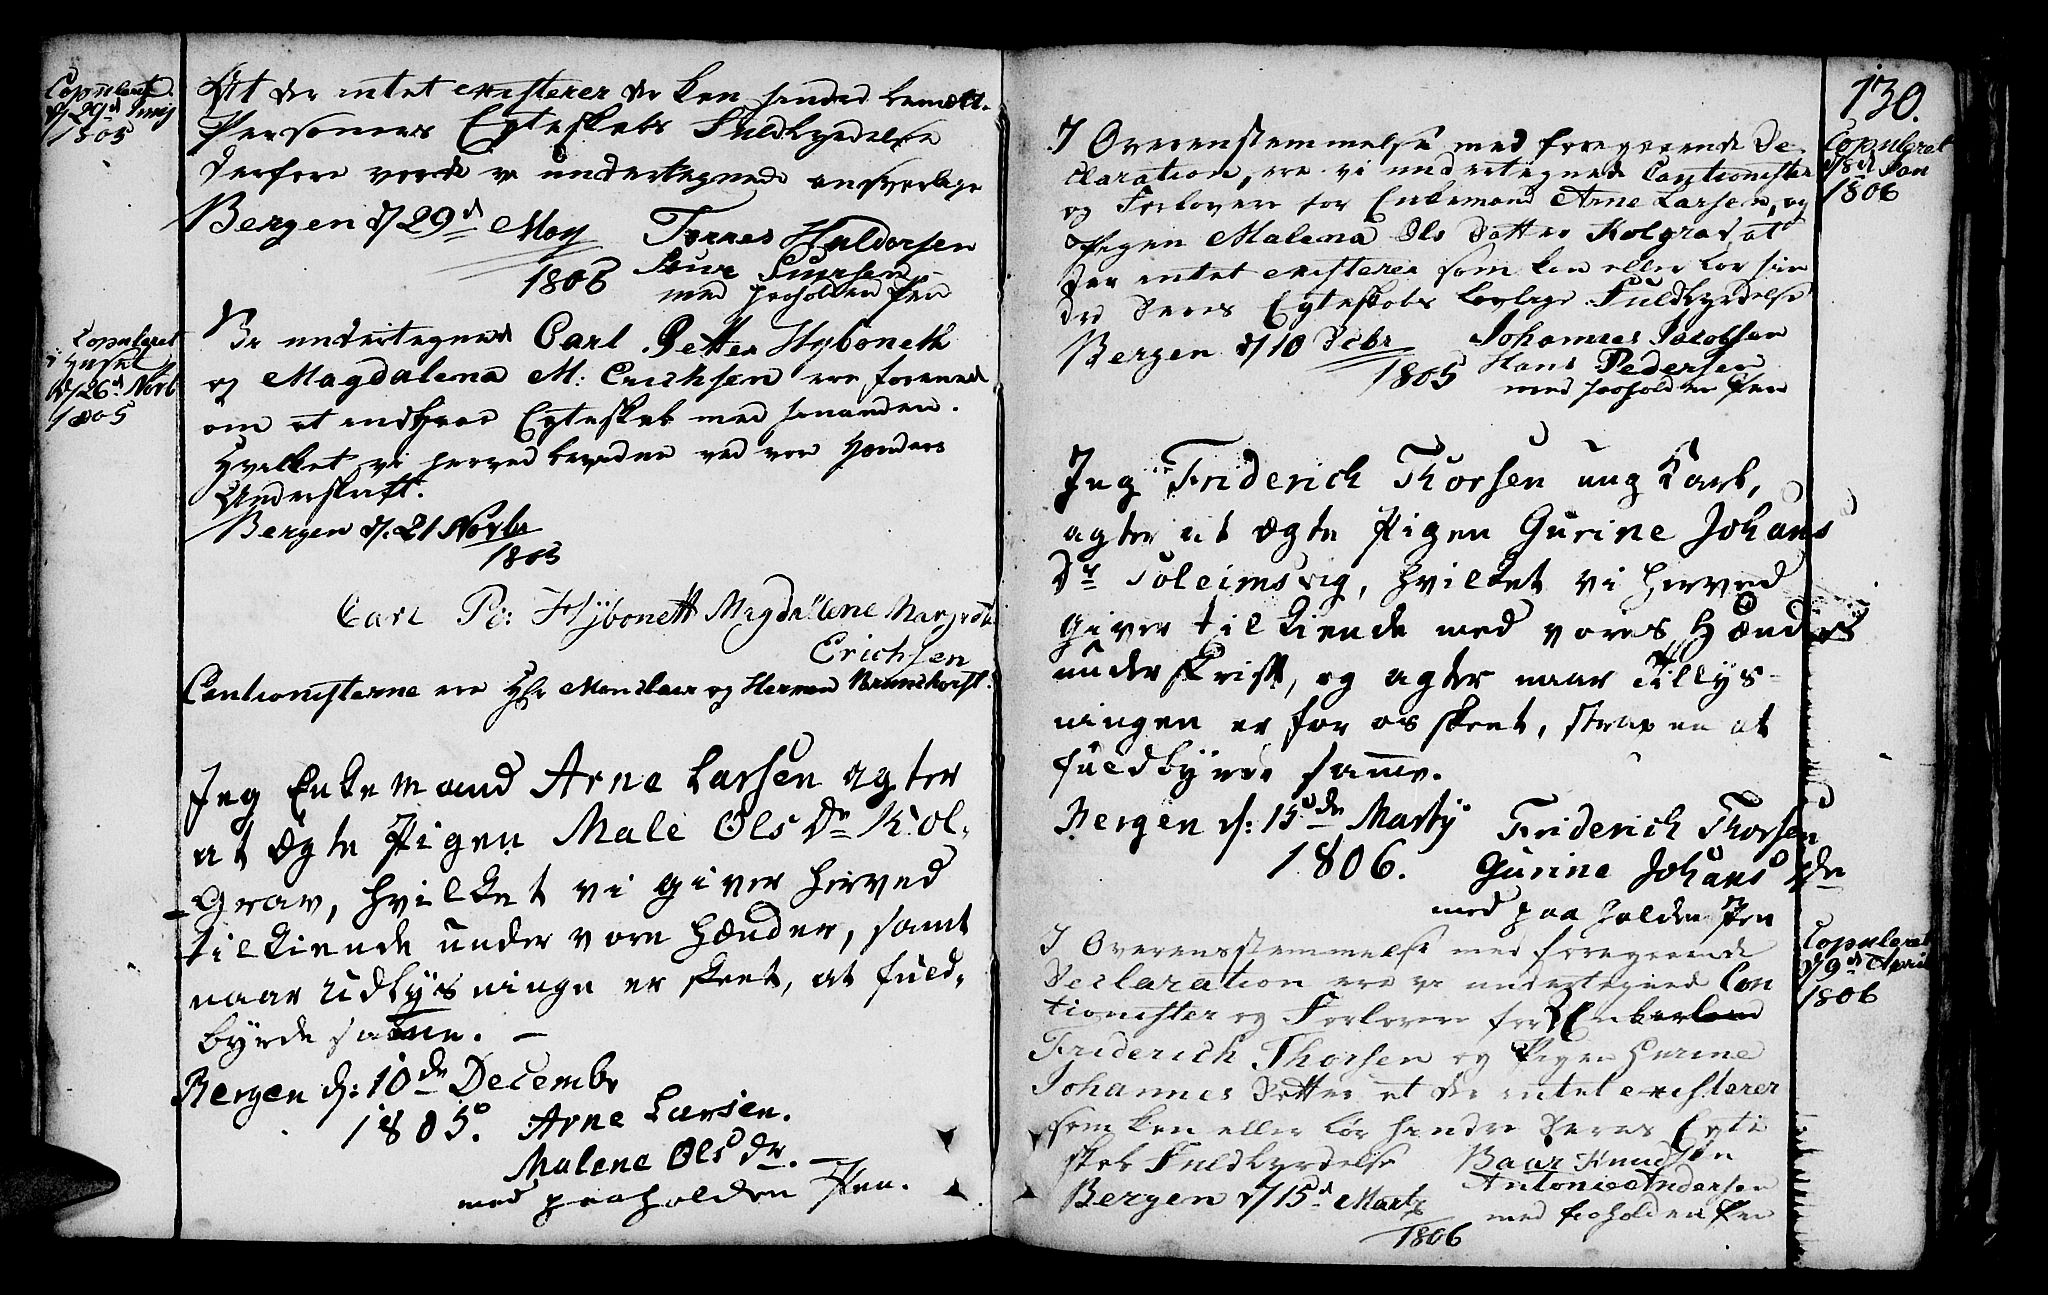 Copuleret
d/29d Junij
1805
At der intet existerer der kan hindre bemelte
Personers Egteskabs Fuldbyrdelse
derfore vorde vi undertegnede ansvarlige
Bergen d/29d May
1805
Torres Haldorsen
Siur Siursen
med paaholden Pen
Copuleret
i Huset
d/26d Novb
1805
Vi undertegnede Carl Petter Hyboneth
og Magdalena M: Erichsen ere forenede
om at indtræde Egteskab med hinanden.
Hvilket vi herved bevidne ved vore Hænders
Underskrift.
Bergen d/.21 Novbr
1805
Carl Pe: Hÿbonett Magdallene Margrete
Erichsen
Cautionisterne ere Hr Monclair og Herman Brunchorst.
Jeg Enkemand Arne Larsen agter
at Ægte Pigen Male Ols Dr Kol-
-Grav, hvilket vi giver herved
tilkiende under vore Hænder, samt
naar Udlysninge er skeet, at fuld-
byrde samme. —
Bergen d: 10de Decembr
1805.
Arne Larsen.
Malene Ols dr. —
med paaholden Pen.
130.
Copuleret
d/8d Jan
1806
I Overenstemmelse med foregaaende De-
claration, ere vi undertegnede Cautionister
og Forlovere for Enkemand Arne Larsen, og
Pigen Malena Ols Datter Kolgrav, at
der intet existerer som kan eller bør hin
dre deres Egteskabs lovlige Fuldbyrdelse
Bergen d/10 Debr
1805
Johannes Jacobsen
Hans Pedersen
med paaholden Pen
Jeg Friderich Thorsen ung Karl,
agter at Ægte Pigen Gurine Johans
Dr Soleimsvig, hvilket vi herved
giver tilkiende med vores Hænders
underskrift, og agter naar Tillys-
ningen er for os skeet, strax en at
fuldbyrde samme.
Bergen d: 15de Martij
1806.
Friderich Thorsen
Gurine Johans dr
med paa holden Pen
Copuleret
d/9d April
1806
I Overensstemmelse med foregaaende
Declaration ere vi undertegnede Cau
tionister og Forlovere for Enkarland
Friderich Thorsen og Pigen Gurine
Johannes Datter at der intet existerer
som kan eller bør hindre deres Egte
skab Fuldbyrdelse
Bergen d/15d Marts
1806
Baar Knudsen
Antonie Andersen
med paaholden Pen